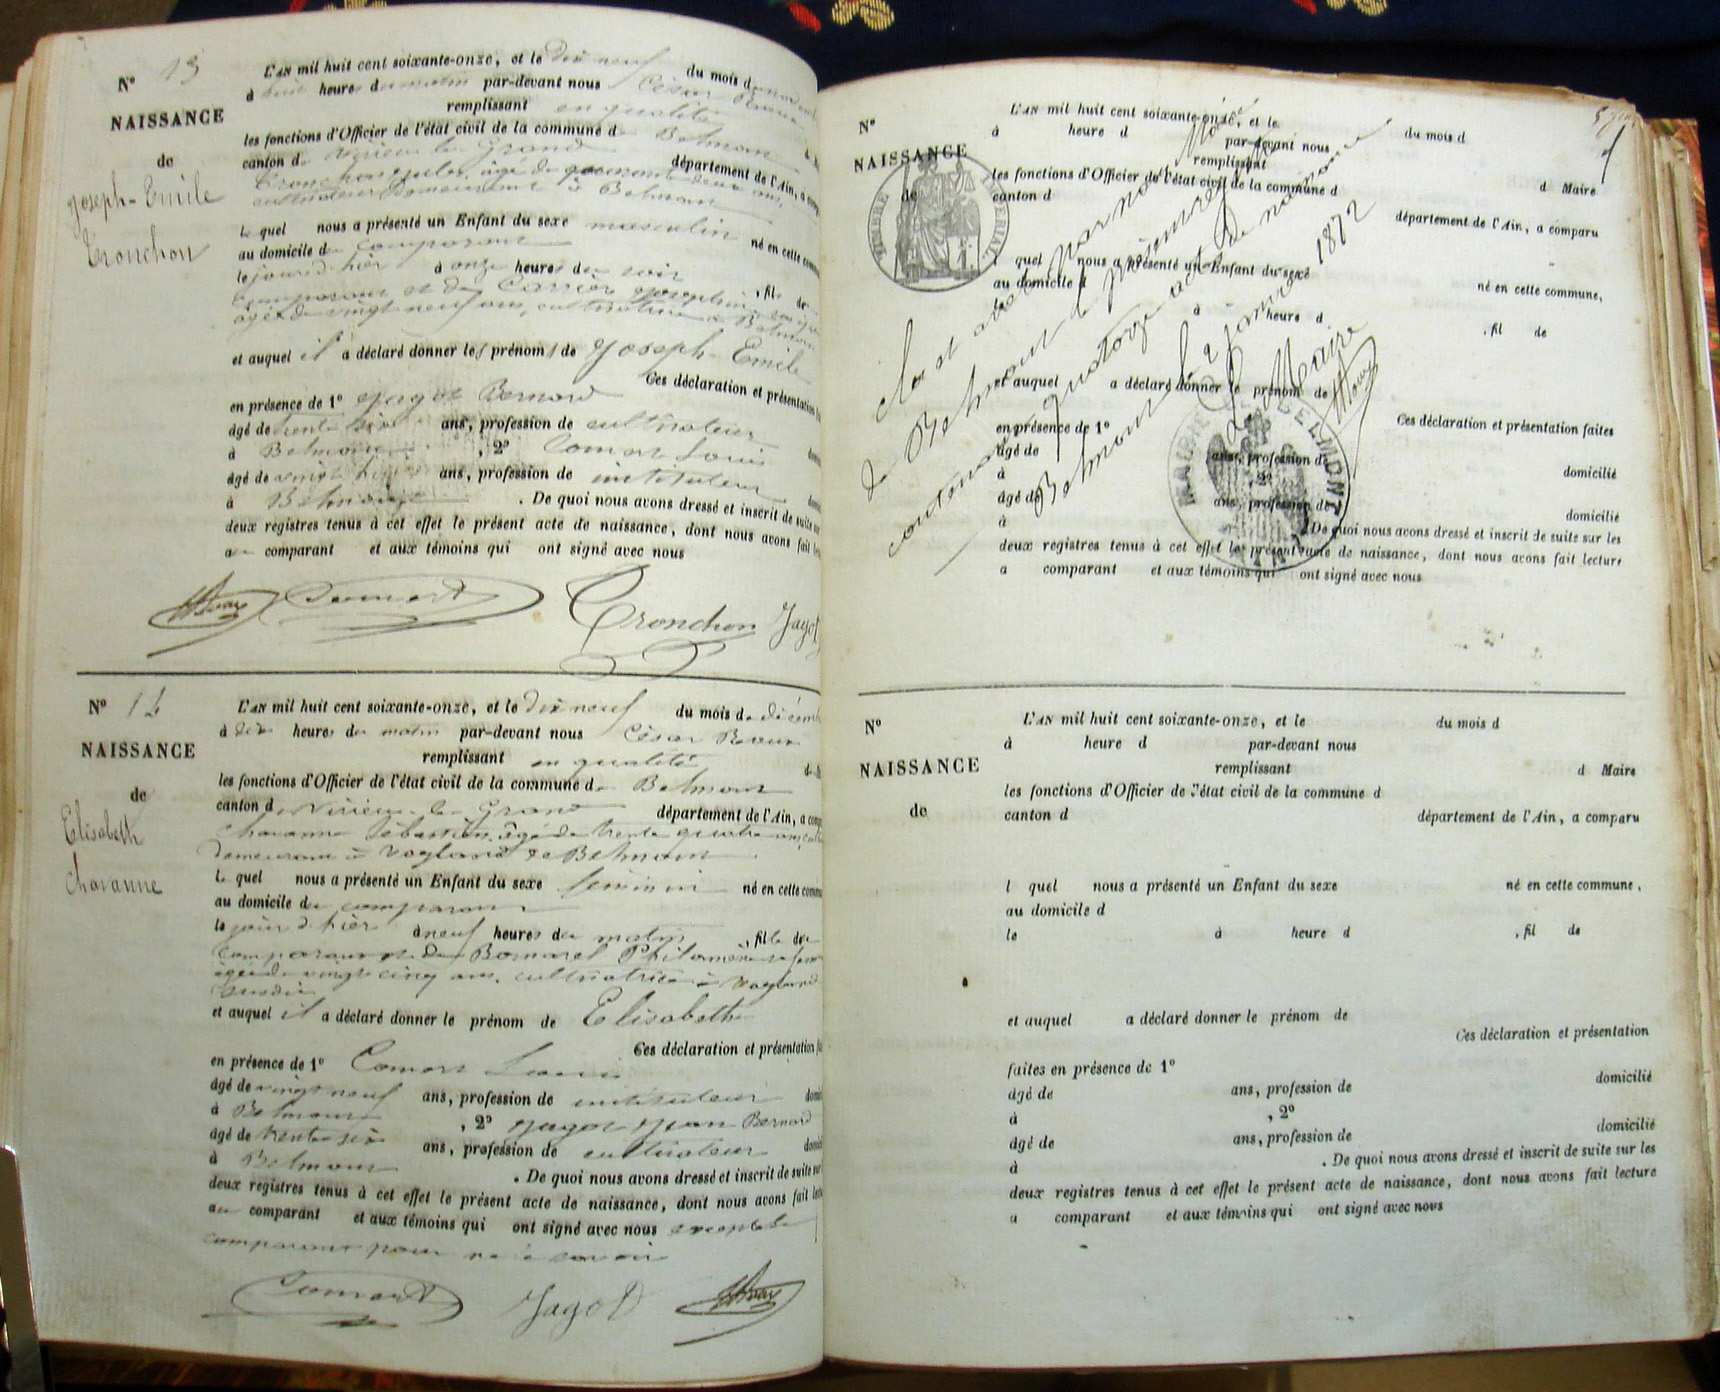 N° 13
NAISSANCE
de
Joseph-Emile
Tronchon
L'AN mil huit cent soixante-onze, et le dix neuf du mois de
à huit heures du matin par-devant nous César
remplissant en qualité
les fonctions d'Officier de l'état civil de la commune de Belmont
canton de Virieu le Grand département de l'Ain, a comparu
Tronchon âgé de quarante deux ans,
cultivateur demeurant à Belmont
le quel nous a présenté un Enfant du sexe masculin né en cette commune
au domicile du comparant
le jour d'hier à onze heures du soir , fils de
comparant et de Carrier Josephine
âgée de vingt neuf ans, cultivatrice à Belmont
et auquel il a déclaré donner les prénoms de Joseph-Emile
Ces déclaration et présentation
en présence de 1° Jagot Bernard
âgé de trente six ans, profession de cultivateur
à Belmont , 2° Comart Louis
âgé de vingt neuf ans, profession de instituteur
à Belmont . De quoi nous avons dressé et inscrit de suite sur
deux registres tenus à cet effet le présent acte de naissance, dont nous avons fait
au comparant et aux témoins qui ont signé avec nous
Comart Tronchon Jagot
N° 14
NAISSANCE
de
Elisabeth
Chavanne
L'AN mil huit cent soixante-onze, et le dix neuf du mois de décemb
à dix heures du matin par-devant nous César
remplissant en qualité
les fonctions d'Officier de l'état civil de la commune de Belmont
canton de Virieu le Grand département de l'Ain, a comp
Chavanne Sébastien, âgé de trente quatre ans
demeurant à Vogland de Belmont
le quel nous a présenté un Enfant du sexe féminin né en cette commu
au domicile du comparant
le jour d'hier à neuf heures du matin , fille du
comparant et de Bornarel Philomène sa femme
âgée de vingt cinq ans, cultivatrice à Vogland
susdit
et auquel il a déclaré donner le prénom de Elisabeth
Ces déclaration et présentation
en présence de 1° Comart Louis
âgé de vingt neuf ans, profession de instituteur
à Belmont , 2° Jagot Jean Bernard
âgé de trente six ans, profession de cultivateur
à Belmont . De quoi nous avons dressé et inscrit de suite sur
deux registres tenus à cet effet le présent acte de naissance, dont nous avons fait
au comparant et aux témoins qui ont signé avec nous excepté le
comparant pour ne le savoir
Comart Jagot
N°
NAISSANCE
de
TIMBRE
L'AN mil huit cent soixante-onze, et le du mois d
à heure d par-devant nous
remplissant
d Maire
les fonctions d'Officier de l'état civil de la commune d
canton d département de l'Ain, a comparu
l quel nous a présenté un Enfant du sexe né en cette commune,
au domicile d
le à heure d , fil de
et auquel a déclaré donner le prénom de
Ces déclaration et présentation faites
en présence de 1°
âgé de ans, profession de domicilié
à , 2°
âgé de ans, profession de domicilié
à . De quoi nous avons dressé et inscrit de suite sur les
deux registres tenus à cet effet le présent acte de naissance, dont nous avons fait lecture
a comparant et aux témoins qui ont signé avec nous
Clos et arrêté par nous Maire
de Belmont le présent registre
contenant quatorze actes de naissance
Belmont le 1 janvier 1872
Le Maire
MAIRIE DE BELMONT
AIN
N°
NAISSANCE
de
L'AN mil huit cent soixante-onze, et le du mois d
à heure d par-devant nous
remplissant d Maire
les fonctions d'Officier de l'état civil de la commune d
canton d département de l'Ain, a comparu
l quel nous a présenté un Enfant du sexe né en cette commune,
au domicile d
le à heure d , fil de
et auquel a déclaré donner le prénom de
Ces déclaration et présentation
faites en présence de 1°
âgé de ans, profession de domicilié
à , 2°
âgé de ans, profession de domicilié
à . De quoi nous avons dressé et inscrit de suite sur les
deux registres tenus à cet effet le présent acte de naissance, dont nous avons fait lecture
a comparant et aux témoins qui ont signé avec nous